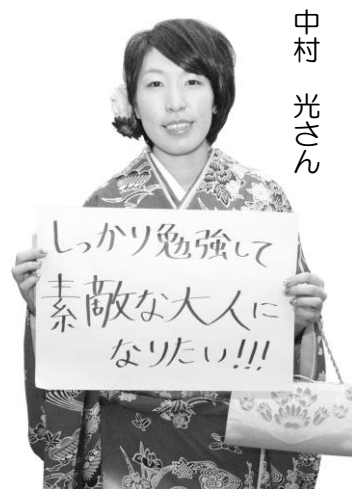 中村　光さん
しっかり勉強して
素敵な大人に
なりたい!!!